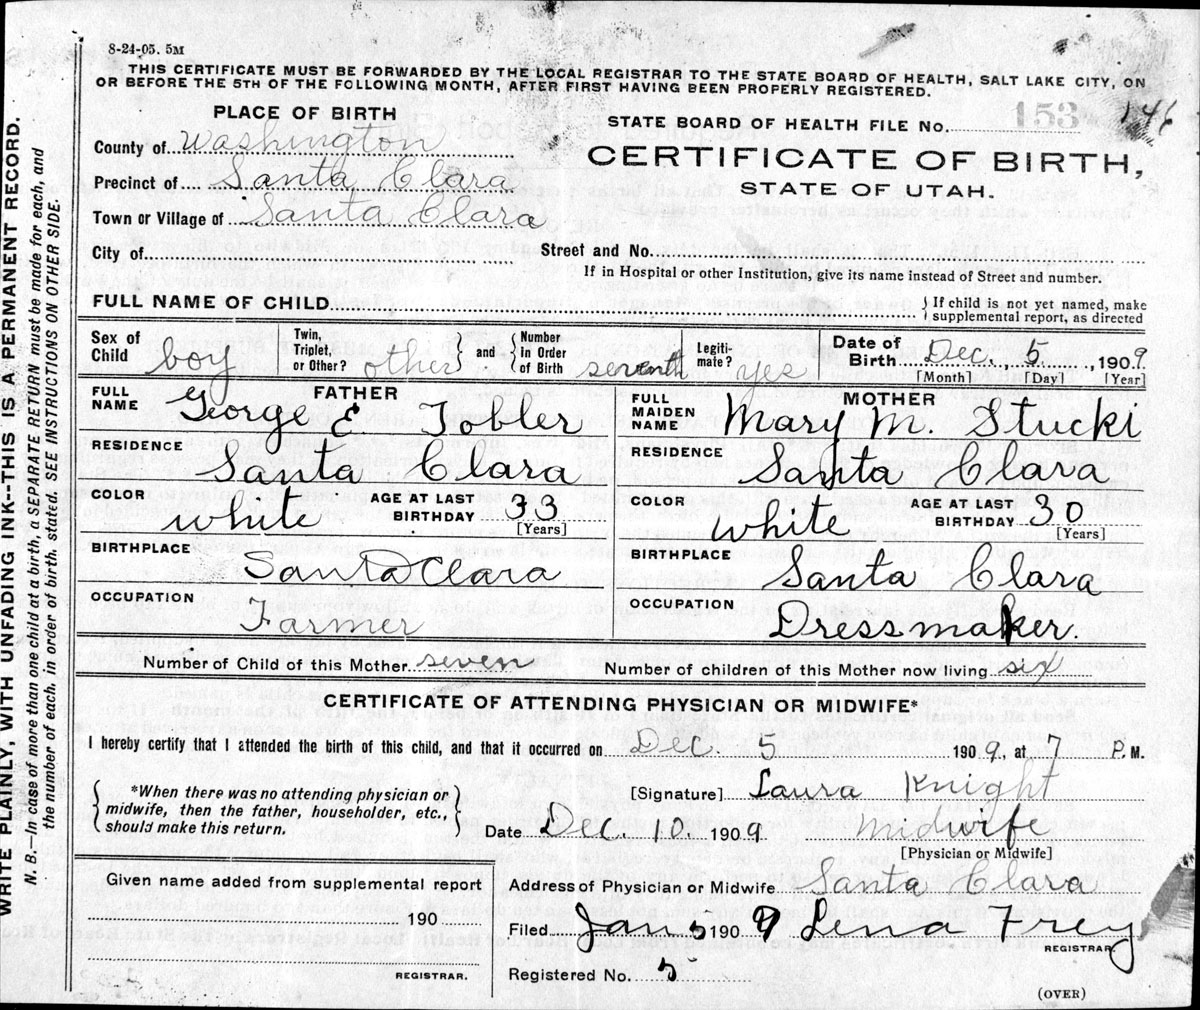 8-24-05. 5M
THIS CERTIFICATE MUST BE FORWARDED BY THE LOCAL REGISTRAR TO THE STATE BOARD OF HEALTH, SALT LAKE CITY, ON
OR BEFORE THE 5TH OF THE FOLLOWING MONTH, AFTER FIRST HAVING BEEN PROPERLY REGISTERED.
PLACE OF BIRTH
County of Washington
Precinct of Santa Clara
Town or Village of Santa Clara
City of
STATE BOARD OF HEALTH FILE No. 153 146
CERTIFICATE OF BIRTH,
STATE OF UTAH.
Street and No.
If in Hospital or other Institution, give its name instead of Street and number.
FULL NAME OF CHILD
If child is not yet named, make
supplemental report, as directed
Sex of Child boy
Twin, Triplet, or Other? other
and
Number in Order of Birth seventh
Legitimate? yes
Date of Birth Dec. 5, 1909
[Month] [Day] [Year]
FATHER
FULL NAME George E Tobler
RESIDENCE Santa Clara
COLOR white
AGE AT LAST BIRTHDAY 33
[Years]
BIRTHPLACE Santa Clara
OCCUPATION Farmer
MOTHER
FULL MAIDEN NAME Mary M. Stucki
RESIDENCE Santa Clara
COLOR white
AGE AT LAST BIRTHDAY 30
[Years]
BIRTHPLACE Santa Clara
OCCUPATION Dressmaker.
Number of Child of this Mother seven
Number of children of this Mother now living six
CERTIFICATE OF ATTENDING PHYSICIAN OR MIDWIFE*
I hereby certify that I attended the birth of this child, and that it occurred on Dec. 5 1909, at 7 P.M.
*When there was no attending physician or
midwife, then the father, householder, etc.,
should make this return.
[Signature] Laura Knight
Date Dec. 10. 1909. Midwife
[Physician or Midwife]
Given name added from supplemental report
190
REGISTRAR.
Address of Physician or Midwife Santa Clara
Filed Jan 5 190 9 Lena Frey
REGISTRAR.
Registered No. 5
(OVER)
WRITE PLAINLY, WITH UNFADING INK--THIS IS A PERMANENT RECORD.
N. B.—In case of more than one child at a birth, a SEPARATE RETURN must be made for each, and
the number of each, in order of birth, stated. SEE INSTRUCTIONS ON OTHER SIDE.